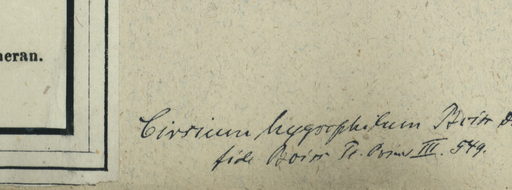 neran.
Cirsium hygrophilum Boiss
fide Boiss Fl. III. 549.